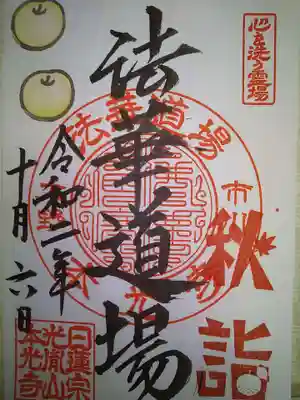 心を洗う霊場
法華道場
法華道場
市
秋詣
令和二年
十月六日
日蓮宗
光胤山
本光寺